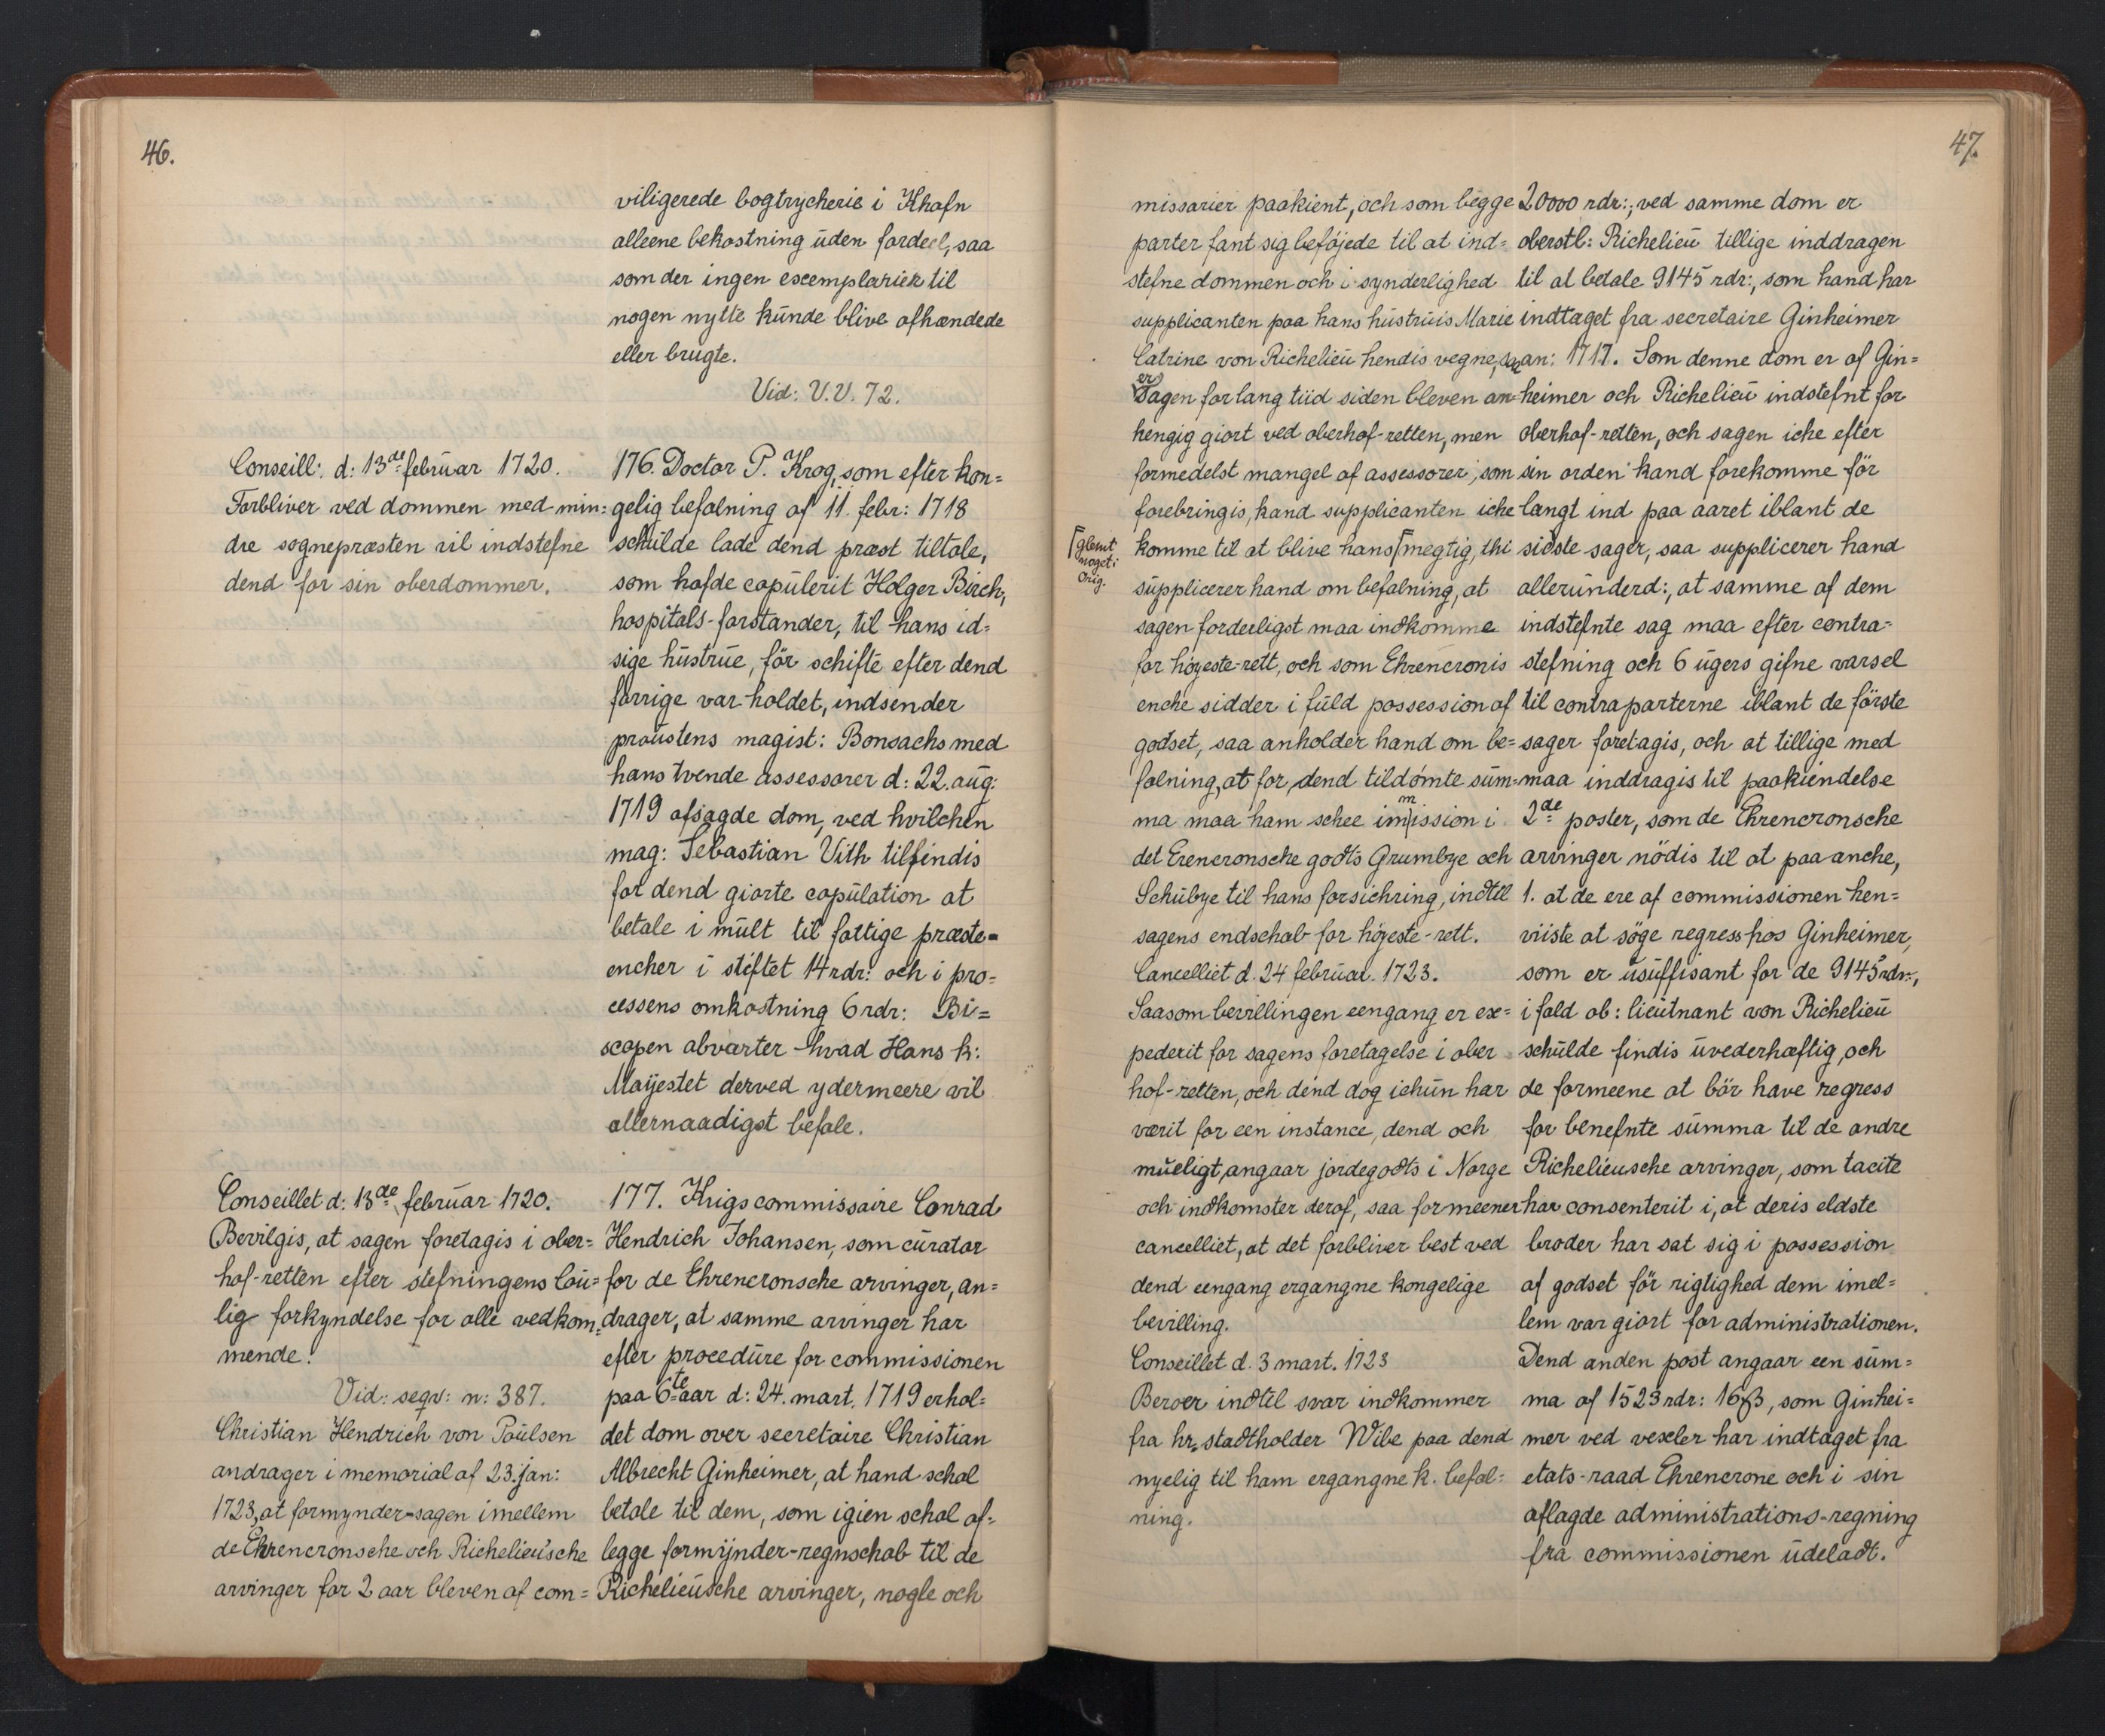 46.
viligerede bogtrycherie i Khafn
alleene bekostning uden fordeel, saa
som der ingen exemplarier til
nogen nytte kunde blive afhændede
eller brugte.
Vid: V.V. 72.
Conseill: d: 13de februar 1720.
Forbliver ved dommen med min=
dre sognepræsten vil indstefne
dend for sin oberdommer.
176. Doctor P. Krog, som efter kon=
gelig befalning af 11. febr: 1718
schulde lade dend præst tiltale,
som hafde copulerit Holger Birch,
hospitals-forstander, til hans id=
sige hustrue, för schifte efter dend
forrige var holdet, indsender
proustens magist: Bonsachs med
hans tvende assessorer d: 22. aug:
1719 afsagde dom, ved hvilchen
mag: Sebastian Vith tilfindis
for dend giorte copulation at
betale i mult til fattige præste=
encher i stiftet 14 rdr: och i pro=
cessens omkostning 6 rdr: Bi=
scopen obvarter hvad Hans k:
Mayestet derved ydermeere vil
allernaadigst befale.
Conseillet d: 13de februar 1720.
Bevilgis, at sagen foretagis i ober=
hof-retten efter stefningens lou=
lig forkyndelse for alle vedkom=
mende.
Vid: seqv: n: 387.
Christian Hendrich von Poulsen
andrager i memorial af 23. jan:
1723, at formynder-sagen imellem
de Ehrencronsche och Richelieusche
arvinger for 2 aar bleven af com=
177. Krigscommissaire Conrad
Hendrich Johansen, som curator
for de Ehrencronsche arvinger, an=
drager, at samme arvinger har
efter procedure for commissionen
paa 6te aar d: 24. mart. 1719 erhol=
det dom over secretaire Christian
Albrecht Ginheimer, at hand schal
betale til dem, som igien schal af=
legge formynder-regnschab til de
Richelieusche arvinger, nogle och
47.
missarier paakient, och som begge
parter fant sig beföjede til at ind=
stefne dommen och i synderlighed
supplicanten paa hans hustruis Marie
Catrine von Richelieu hendis vegne, saa
er
Sagen for lang tiid siden bleven an=
hengig giort ved oberhof-retten, men
formedelst mangel af assessorer, som
forebringis, kand supplicanten iche
komme til at blive hans megtig, thi
glemt
noget i
Orig.
supplicerer hand om befalning, at
sagen forderligst maa indkomme
for höyeste-rett, och som Ehrencronis
enche sidder i fuld possession af
godset, saa anholder hand om be=
falning, at for dend tildömte sum=
ma maa ham schee immission i
det Erencronsche godts Grumbye och
Schubye til hans forsichring, indtil
sagens endschab for höyeste-rett.
Cancelliet d. 24 februar. 1723.
Saasom bevillingen eengang er ex=
pederit for sagens foretagelse i ober
hof-retten, och dend dog ichun har
værit for een instance, dend och
mueligt, angaar jordegodts i Norge
och indkomster deraf, saa formeener
cancelliet, at det forbliver best ved
dend eengang ergangne kongelige
bevilling.
Conseillet d. 3 mart. 1723
Beroer indtil svar indkommer
fra hr. stadtholder Wibe paa dend
nyelig til ham ergangne k. befal=
ning.
20000 rdr:; ved samme dom er
oberstl: Richelieu tillige inddragen
til at betale 9145 rdr:, som hand har
indtaget fra secretaire Ginheimer
an: 1717. Som denne dom er af Gin=
heimer och Richelieu indstefnt for
oberhof-retten, och sagen iche efter
sin orden kand forekomme för
langt ind paa aaret iblant de
sidste sager, saa supplicerer hand
allerunderd:, at samme af dem
indstefnte sag maa efter contra=
stefning och 6 ugers gifne varsel
til contraparterne iblant de förste
sager foretagis, och at tillige med
maa inddragis til paakiendelse
2de poster, som de Ehrencronsche
arvinger nödis til at paa anche,
1. at de ere af commissionen hen=
viiste at söge regress hos Ginheimer,
som er usuffisant for de 9145 rdr:,
i fald ob: lieutnant von Richelieu
schulde findis uvederhæftig, och
de formeene at bör have regress
for benefnte summa til de andre
Richelieusche arvinger, som tacite
har consenterit i, at deris eldste
broder har sat sig i possession
af godset för rigtighed dem imel=
lem var giort for administrationen.
Dend anden post angaar een sum=
ma af 1523 rdr: 16 β, som Ginhei=
mer ved vexler har indtaget fra
etats-raad Ehrencrone och i sin
aflagde administrations-regning
fra commissionen udeladt.